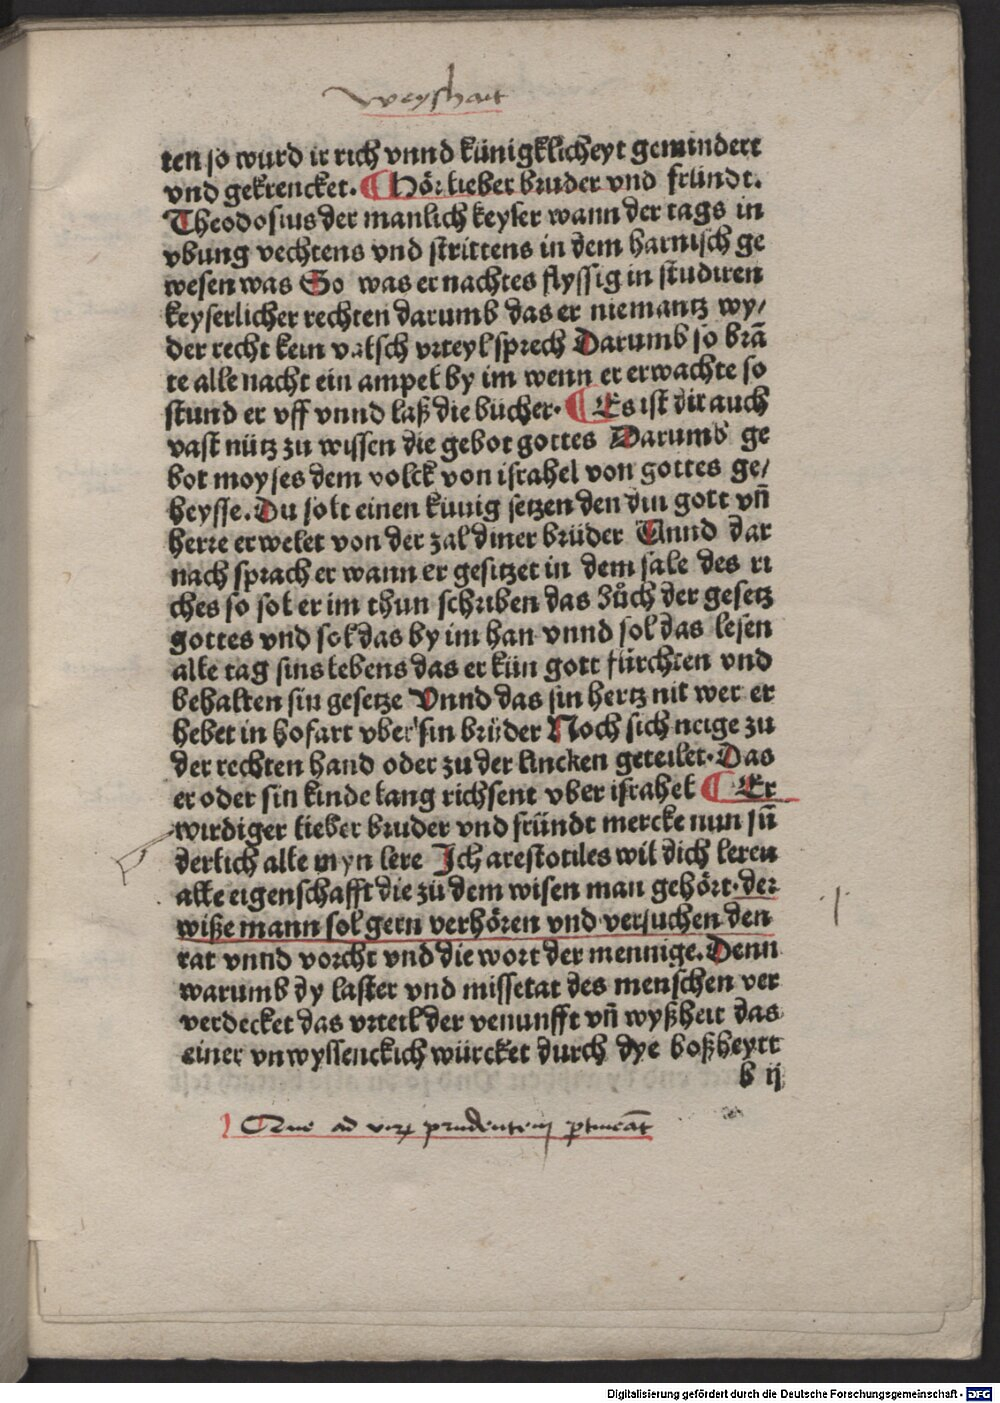 Weyshait
ten so wurd ir rich vnnd künigklicheyt gemindert
vnd gekrencket. Hör lieber bruder vnd fründt.
Theodosius der manlich keyser wann der tags in
vbung vechtens vnd strittens in dem harnisch ge
wesen was So was er nachtes flyssig in studiren
keyserlicher rechten darumb das er niemantz wy/
der recht kein valsch vrteyl sprech Darumb so brā
te alle nacht ein ampel by im wenn er erwachte so
stund er vff vnnd laß die bücher. Es ist dir auch
vast nütz zu wissen die gebot gottes Darumb ge
bot moyses dem volck von israhel von gottes ge/
heysse. Du solt einen künig setzen den din gott vñ
herre erwelet von der zal diner brüder Vnnd dar
nach sprach er wann er gesitzet in dem sale des ri
ches so sol er im thun schriben das Bůch der gesetz
gottes vnd sol das by im han vnnd sol das lesen
alle tag sins lebens das er kün gott fürchten vnd
behalten sin gesetze Vnnd das sin hertz nit wer er
hebet in hofart vber sin brüder Noch sich neige zu
der rechten hand oder zu der lincken geteilet. Das
er oder sin kinde lang richsent vber israhel Er
wirdiger lieber bruder vnd fründt mercke nun sū
derlich alle myn lere Ich arestotiles wil dich leren
alle eigenschafft die zü dem wisen man gehört. der
wiße mann sol gern verhören vnd versuchen den
rat vnnd vorcht vnd die wort der mennige. Denn
warumb dy laster vnd missetat des menschen ver
verdecket das vrteil der venunfft vñ wyßheit das
einer vnwyssenckich würcket durch dye boßheytt
b ij
Que ad virū prudentem ptineāt
Digitalisierung gefördert durch die Deutsche Forschungsgemeinschaft - DFG